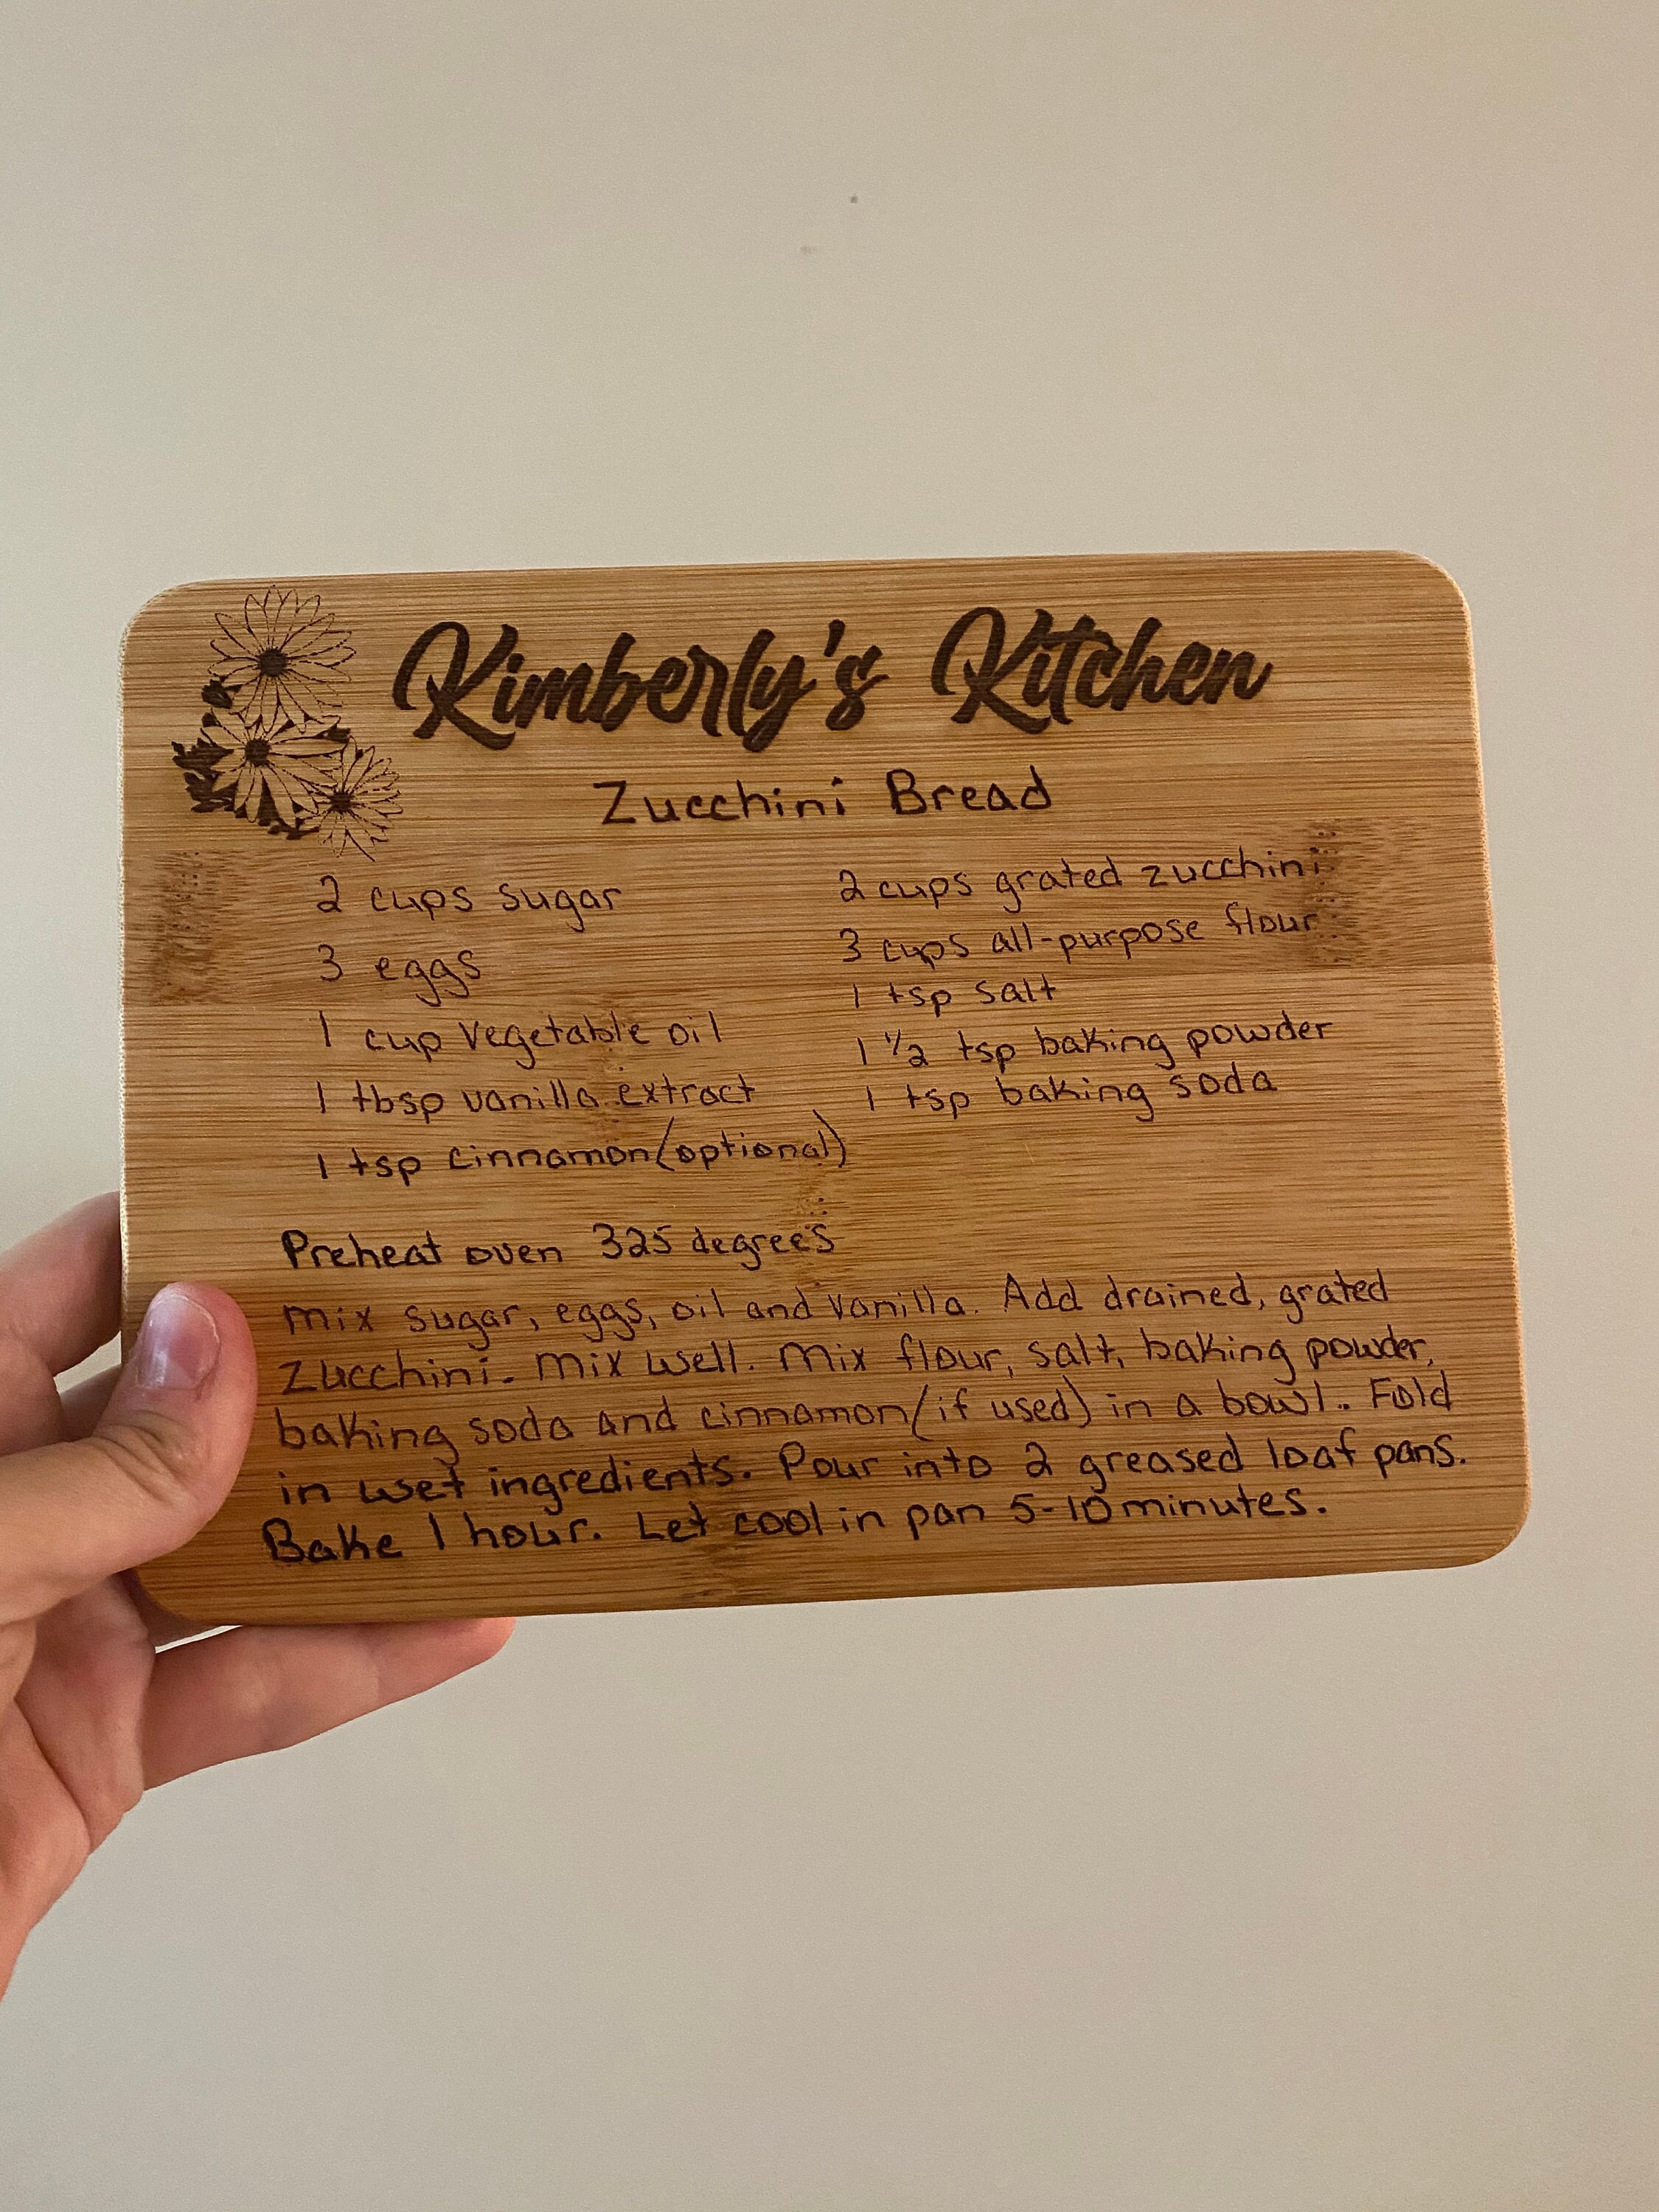 Kimberly's Kitchen
Zucchini Bread
2 cups sugar
3 eggs
1 cup vegetable oil
1 tbsp vanilla extract
1 tsp cinnamon (optional)
2 cups grated zucchini
3 cups all-purpose flour
1 tsp salt
1 1/2 tsp baking powder
1 tsp baking soda
Preheat oven 325 degrees
Mix sugar, eggs, oil and vanilla. Add drained, grated
zucchini. Mix well. Mix flour, salt, baking powder,
baking soda and cinnamon (if used) in a bowl. Fold
in wet ingredients. Pour into 2 greased loaf pans.
Bake 1 hour. Let cool in pan 5-10 minutes.